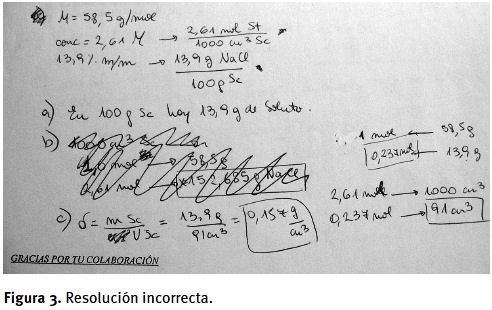 M = 58,5 g/mol
conc = 2,61 M → 2,61 mol St / 1000 cm³ Sc
13,9 % m/m → 13,9 g NaCl / 100 g Sc
a) En 100 g Sc hay 13,9 g de soluto.
b) 1000 cm³ Sc
1,0 mol → 58,5 g
2,61 mol → x = 152,685 g NaCl
1 mol ← 58,5 g
0,237 mol ← 13,9 g
2,61 mol → 1000 cm³
0,237 mol → 91 cm³
c) δ = m Sc / V Sc = 13,9 g / 91 cm³ = 0,157 g / cm³
GRACIAS POR TU COLABORACIÓN
Figura 3. Resolución incorrecta.